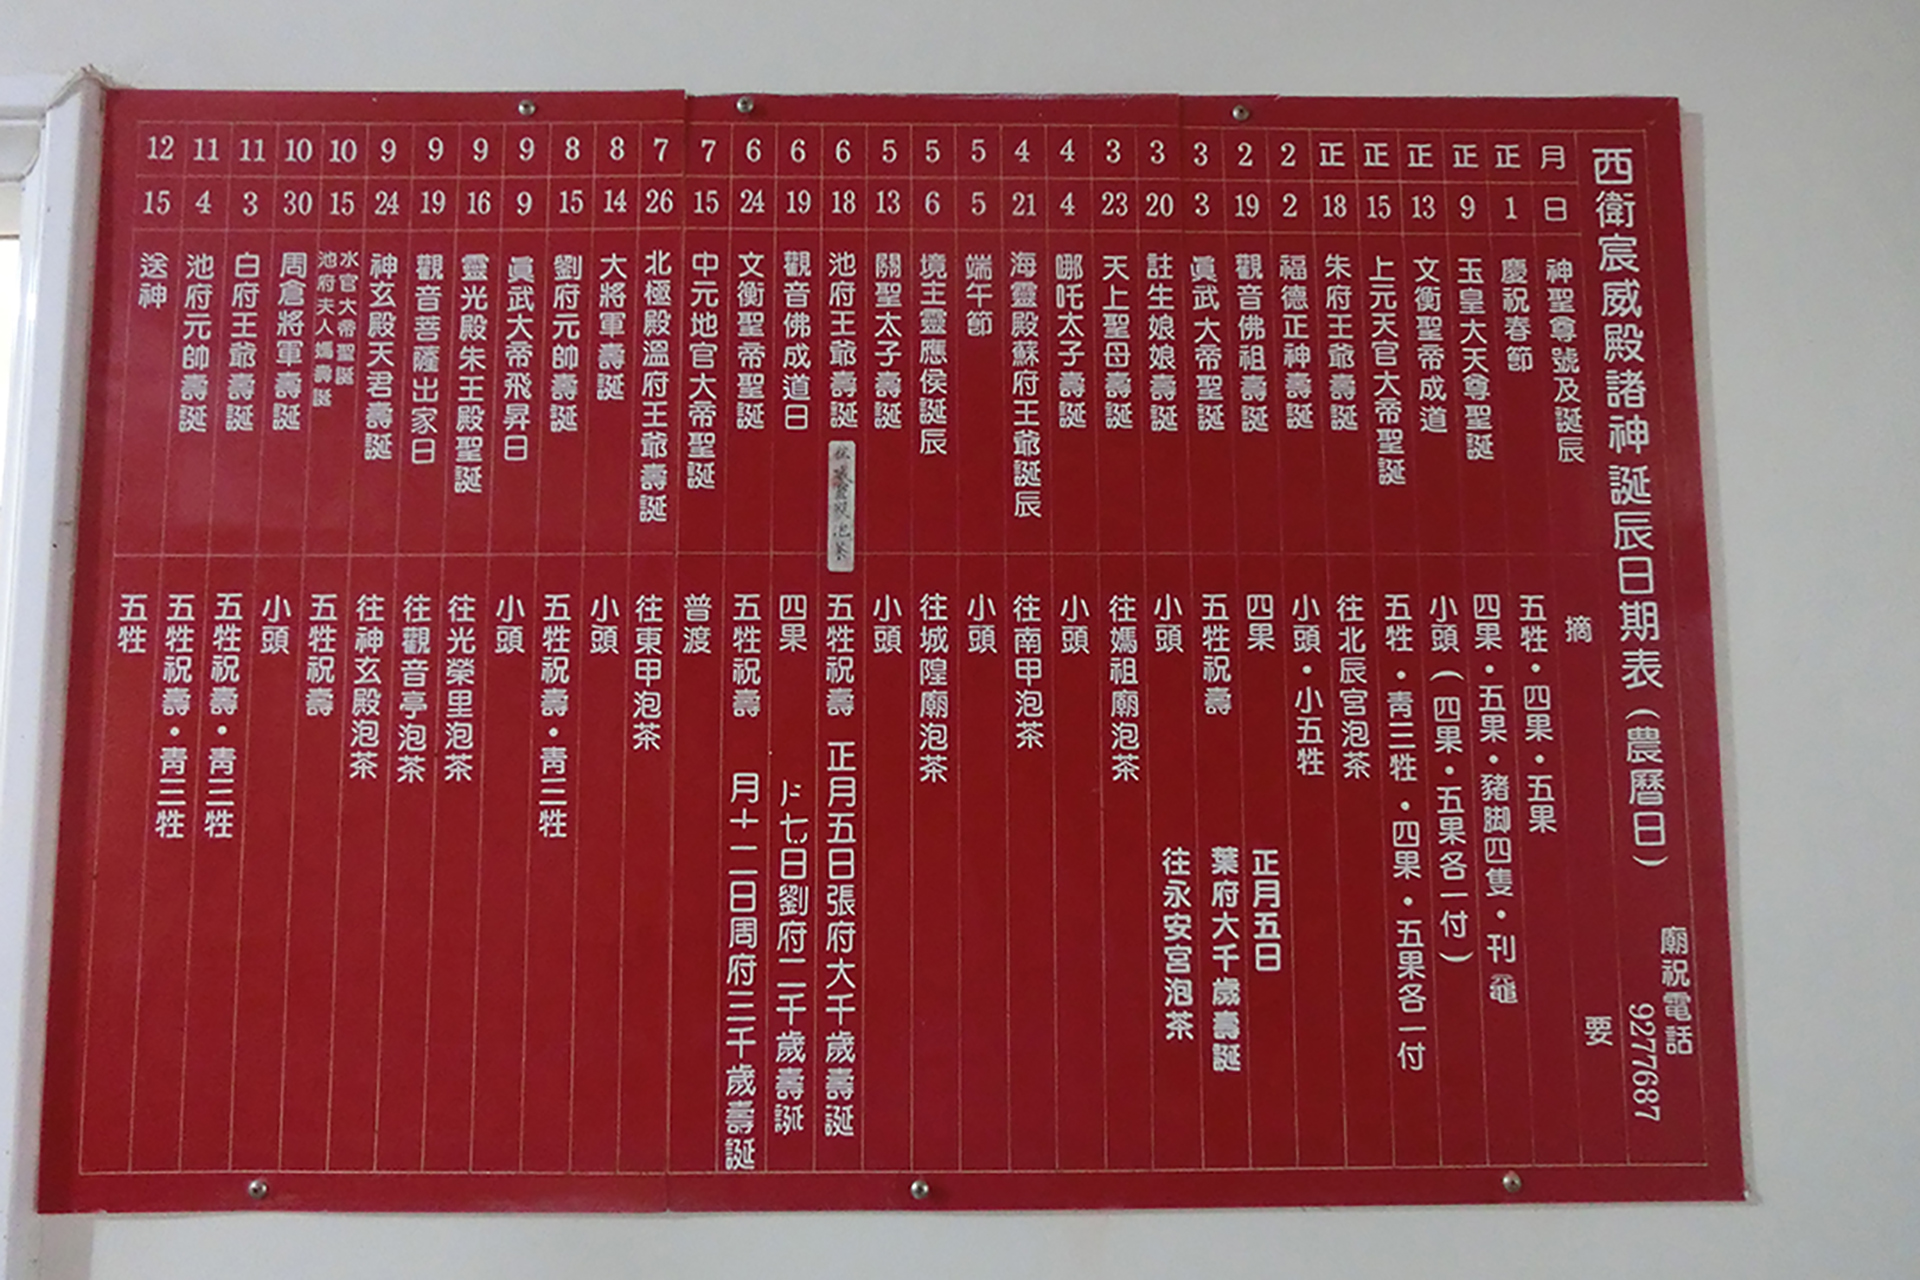 西衛宸威殿諸神誕辰日期表（農曆日）
廟祝電話
9277687
月 日 神聖尊號及誕辰 摘要
正 1 慶祝春節 五牲・四果・五果
正 9 玉皇大天尊聖誕 四果・五果・豬脚四隻・刊龜
正 13 文衡聖帝成道 小頭（四果・五果各一付）
正 15 上元天官大帝聖誕 五牲・青三牲・四果・五果各一付
正 18 朱府王爺壽誕 往北辰宮泡茶
2 2 福德正神壽誕 小頭・小五牲
2 19 觀音佛祖壽誕 四果
3 3 眞武大帝聖誕 五牲祝壽
正月五日
葉府大千歲壽誕
往永安宮泡茶
3 20 註生娘娘壽誕 小頭
3 23 天上聖母壽誕 往媽祖廟泡茶
4 4 哪吒太子壽誕 小頭
4 21 海靈殿蘇府王爺誕辰 往南甲泡茶
5 5 端午節 小頭
5 6 境主靈應侯誕辰 往城隍廟泡茶
5 13 關聖太子壽誕 小頭
6 18 池府王爺壽誕 五牲祝壽 正月五日張府大千歲壽誕
6 19 觀音佛成道日 四果 七日劉府二千歲壽誕
6 24 文衡聖帝聖誕 五牲祝壽 月十二日周府三千歲壽誕
7 15 中元地官大帝聖誕 普渡
7 26 北極殿溫府王爺壽誕 往東甲泡茶
8 14 大將軍壽誕 小頭
8 15 劉府元帥壽誕 五牲祝壽・青三牲
9 9 眞武大帝飛昇日 小頭
9 16 靈光殿朱王殿聖誕 往光榮里泡茶
9 19 觀音菩薩出家日 往觀音亭泡茶
9 24 神玄殿天君壽誕 往神玄殿泡茶
10 15 水官大帝聖誕 池府夫人媽壽誕 五牲祝壽
10 30 周倉將軍壽誕 小頭
11 3 白府王爺壽誕 五牲祝壽・青三牲
11 4 池府元帥壽誕 五牲祝壽・青三牲
12 15 送神 五牲